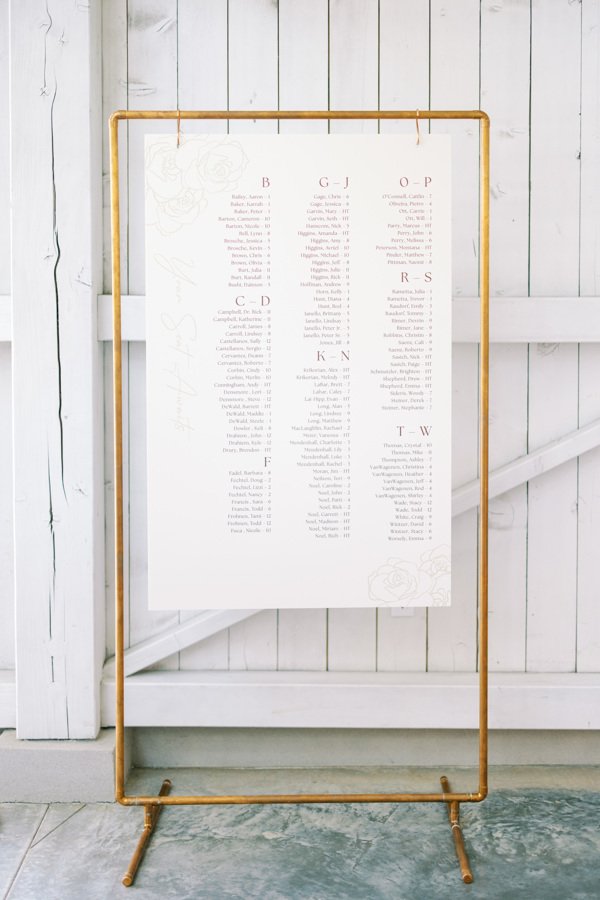 B
Bailey, Aaron - 1
Baker, Karrah - 1
Baker, Peter - 1
Barton, Cameron - 10
Barton, Nicole - 10
Bell, Lynn - 8
Brosche, Jessica - 5
Brosche, Kevin - 5
Brown, Chris - 6
Brown, Olivia - 6
Burt, Julia - 11
Burt, Randall - 11
Bushi, Damson - 3
C - D
Campbell, Dr. Rick - 11
Campbell, Katharine - 11
Carroll, James - 8
Carroll, Lindsay - 8
Castellanos, Sally - 12
Castellanos, Sergio - 12
Cervantez, Deann - 7
Cervantez, Roberto - 7
Corbin, Cindy - 10
Corbin, Marlin - 10
Cunningham, Andy - HT
Densmore, Lori - 12
Densmore, Steve - 12
DeWald, Barrett - HT
DeWald, Maddie - 1
DeWald, Steele - 1
Dowler, Keli - 6
Drahiem, John - 12
Drahiem, Kyle - 12
Drury, Brendon - HT
F
Fadel, Barbara - 8
Fechtel, Doug - 2
Fechtel, Jazzi - 2
Fechtel, Nancy - 2
Francis, Sara - 6
Francis, Todd - 6
Frohnen, Tami - 12
Frohnen, Todd - 12
Fuca, Nicole - 10
G - J
Gage, Chris - 6
Gage, Jessica - 6
Garvin, Mary - HT
Garvin, Seth - HT
Hanscom, Nick - 5
Higgins, Amanda - HT
Higgins, Amy - 8
Higgins, Avriel - 10
Higgins, Michael - 10
Higgins, Jeff - 8
Higgins, Julie - 11
Higgins, Rick - 11
Hoffman, Andrew - 9
Horn, Kelly - 1
Hunt, Diana - 4
Hunt, Rod - 4
Ianello, Brittany - 5
Ianello, Lindsay - 5
Ianello, Peter Jr. - 5
Ianello, Peter Sr. - 5
Jones, Jill - 8
K - N
Kekorian, Alex - HT
Kekorian, Melody - HT
Lahar, Brett - 7
Lahar, Caley - 7
Lai-Hipp, Evan - HT
Long, Alan - 3
Long, Lindsey - 9
Long, Matthew - 9
MacLaughlin, Rachael - 2
Meize, Vanessa - HT
Mendenhall, Charlotte - 3
Mendenhall, Lily - 3
Mendenhall, Luke - 3
Mendenhall, Rachel - 3
Moran, Jim - HT
Neilsen, Tori - 9
Noel, Caroline - 2
Noel, John - 2
Noel, Patti - 4
Noel, Rick - 2
Noel, Garrett - HT
Noel, Madison - HT
Noel, Miriam - HT
Noel, Rich - HT
O - P
O'Connell, Caitlin - 7
Oliveira, Pietro - 4
Ott, Carrie - 1
Ott, Will - 1
Parry, Marcus - HT
Perry, John - 6
Perry, Melissa - 6
Peterson, Montana - HT
Pinder, Matthew - 7
Pittman, Naomi - 8
R - S
Rametta, Julia - 3
Rametta, Trevor - 3
Raudorf, Emily - 3
Raudorf, Tommy - 3
Rimer, Devrin - 9
Rimer, Jane - 9
Robbins, Christie - 4
Saenz, Calli - 9
Saenz, Roberto - 9
Sasich, Nick - HT
Sasich, Paige - HT
Schmutzler, Brighton - HT
Shepherd, Drew - HT
Shepherd, Emma - HT
Sklerh, Woody - 7
Steiner, Derek - 7
Steiner, Stephanie - 7
T - W
Thomas, Crystal - 10
Thomas, Mike - 10
Thompson, Ashley - 7
VanWagenen, Christina - 4
VanWagenen, Heather - 4
VanWagenen, Jeff - 4
VanWagenen, Rod - 4
VanWagenen, Shirley - 4
Wade, Stacy - 12
Wade, Todd - 12
White, Craig - 9
Winzer, David - 6
Winzer, Stacy - 6
Worsely, Emma - HT